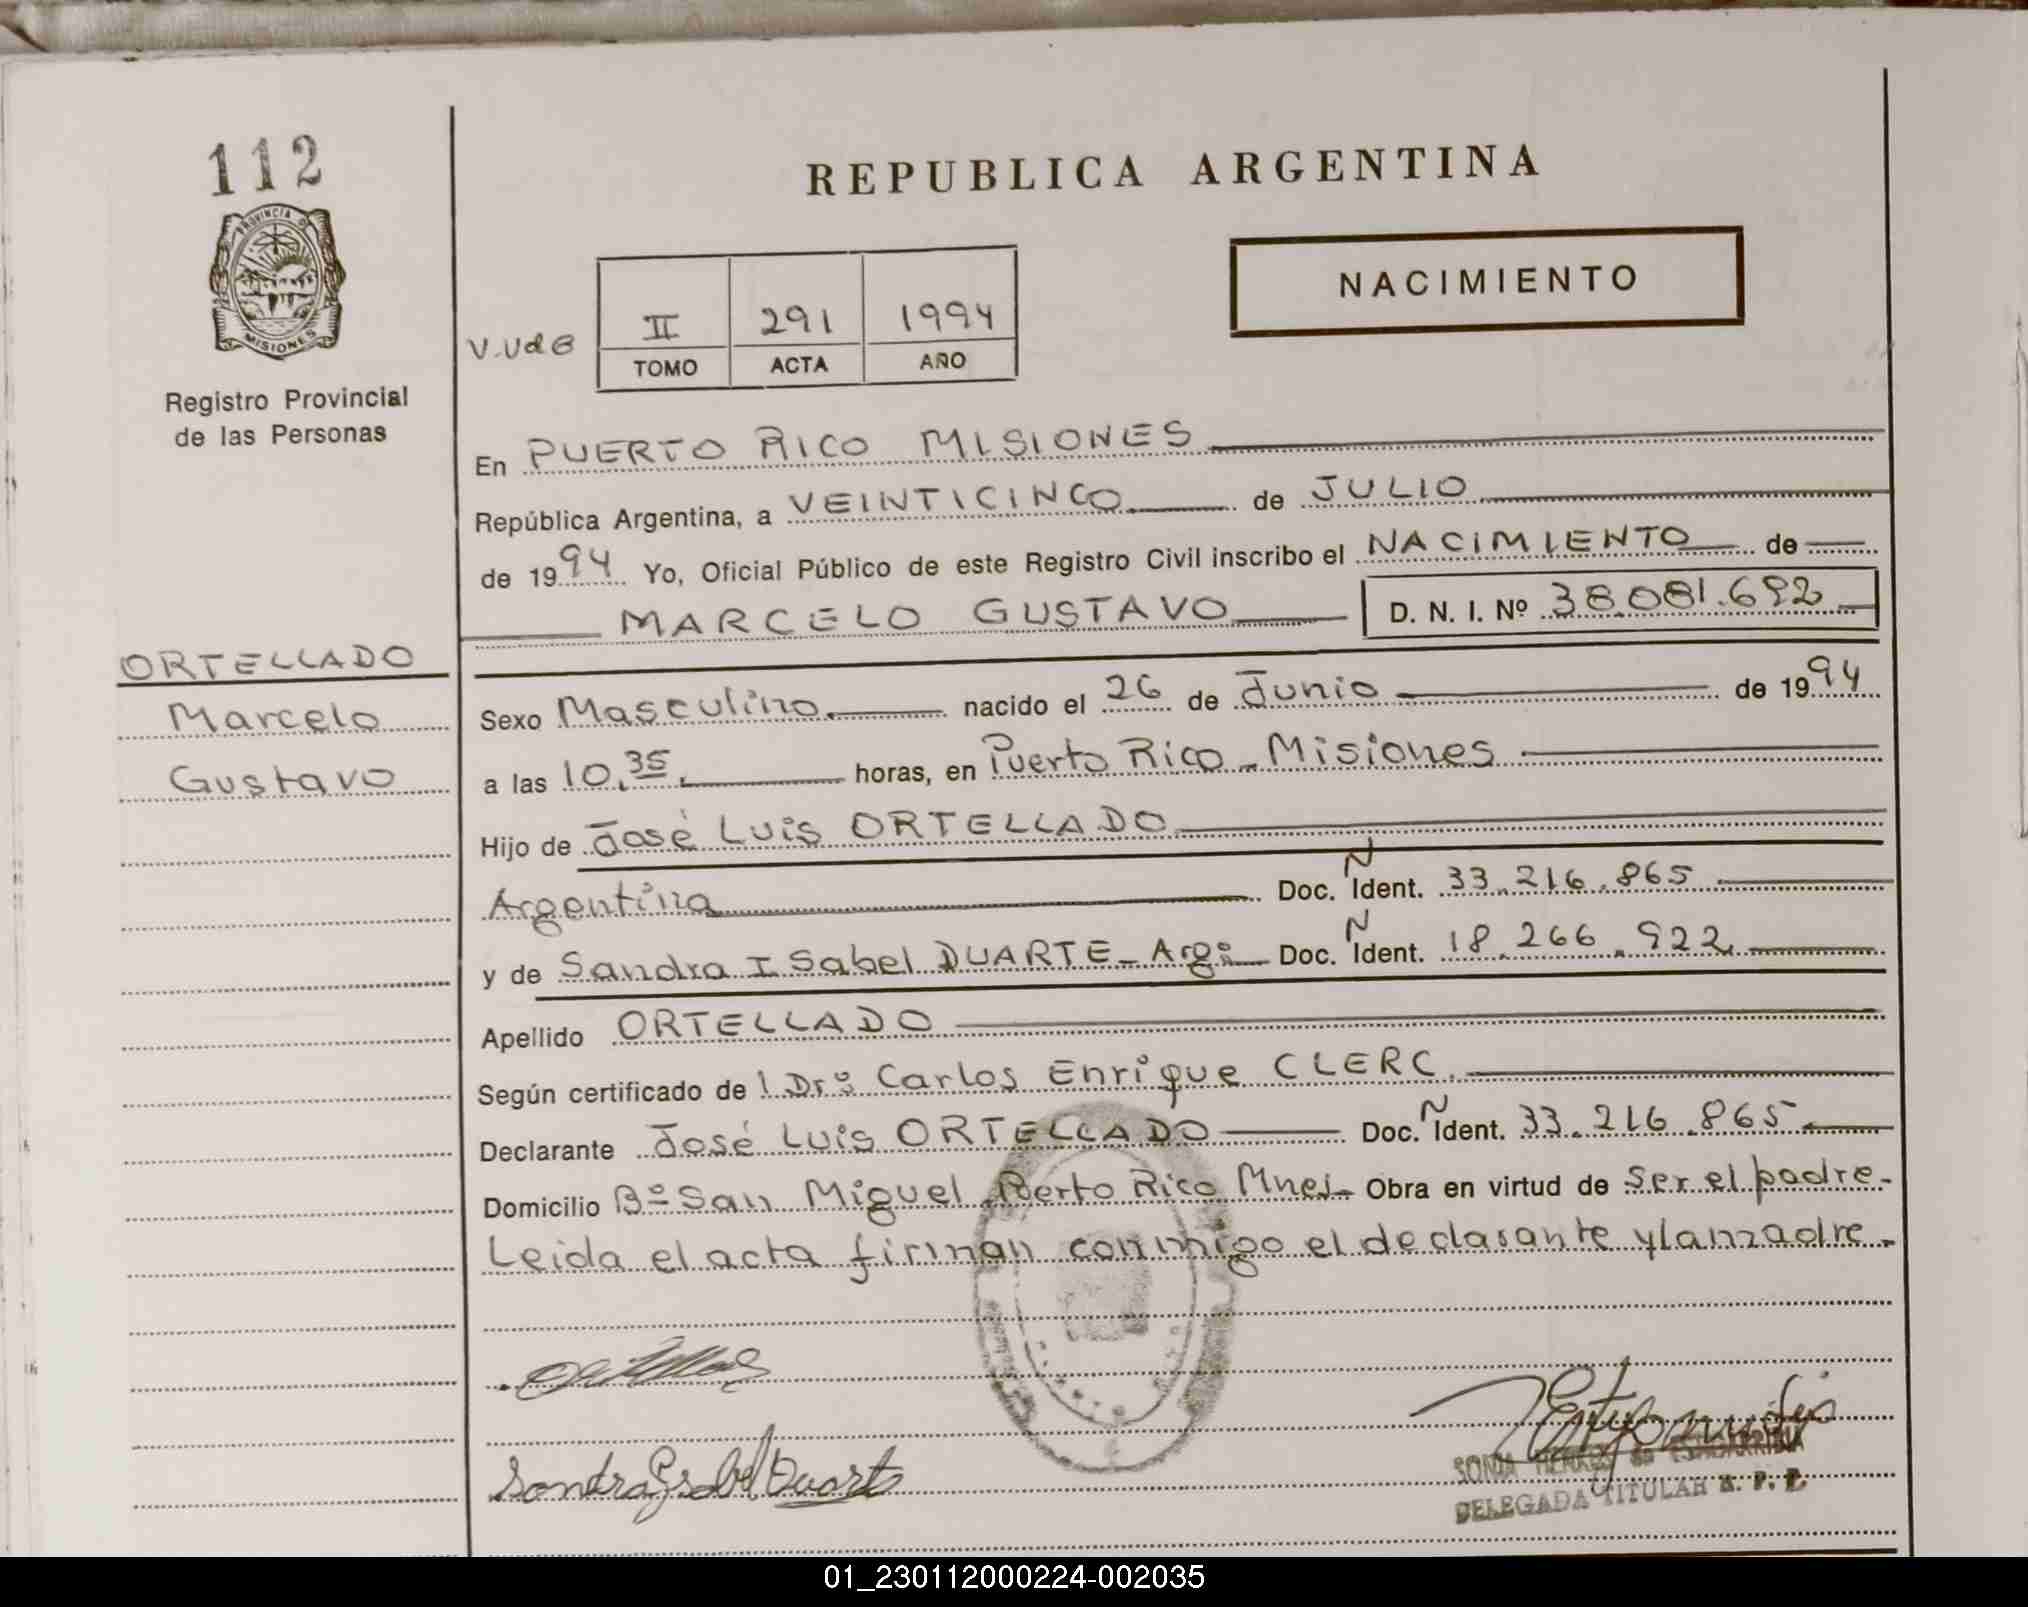 112
PROVINCIA D
MISIONES
Registro Provincial
de las Personas
REPUBLICA ARGENTINA
NACIMIENTO
II 291 1994
TOMO ACTA AÑO
En PUERTO RICO MISIONES
República Argentina, a VEINTICINCO de JULIO
de 1994 Yo, Oficial Público de este Registro Civil inscribo el NACIMIENTO de
MARCELO GUSTAVO D. N. I. Nº 38.081.692
ORTELLADO
Marcelo
Gustavo
Sexo Masculino. nacido el 26 de Junio de 1994
a las 10,35. horas, en Puerto Rico - Misiones
Hijo de José Luis ORTELLADO
Argentina Doc. Ñ Ident. 33.216.865
y de Sandra Isabel DUARTE - Arg: Doc. Ñ Ident. 18.266.922.
Apellido ORTELLADO
Según certificado de l Dr: Carlos Enrique CLERC.
Declarante José Luis ORTELLADO Doc. Ñ Ident. 33.216.865
Domicilio Bº San Miguel Puerto Rico Mnes- Obra en virtud de Ser el padre.-
Leida el acta firman conmigo el declarante y la madre.-
Sandra Isabel Duarte
SONIA
DELEGADA TITULAR R. P. P.
01_230112000224-002035